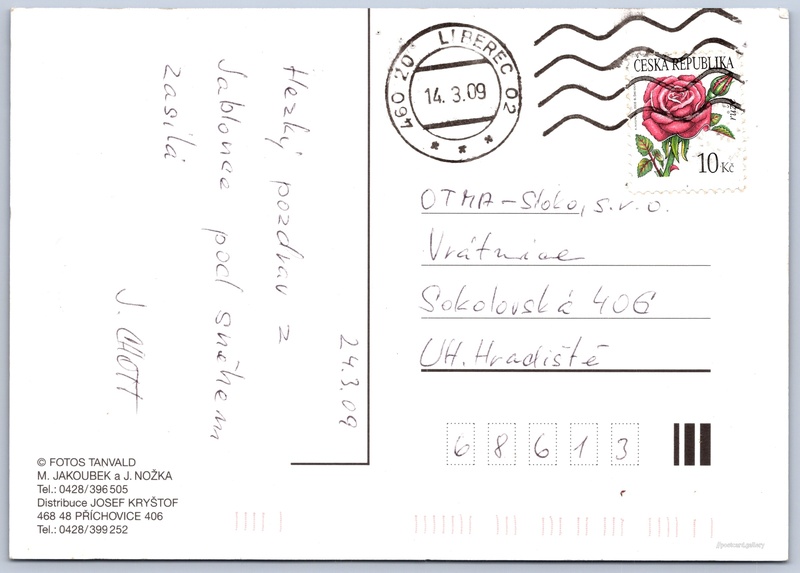 24.3.09
Hezký pozdrav z
Jablonce pod sněhem
zasílá
J. CHOTT
460 20 LIBEREC 02
14.3.09
ČESKÁ REPUBLIKA
10 Kč
OTMA-Sloko, s.r.o.
Vrátnice
Sokolovská 406
UH. Hradiště
68613
© FOTOS TANVALD
M. JAKOUBEK a J. NOŽKA
Tel.: 0428/396 505
Distribuce JOSEF KRYŠTOF
468 48 PŘÍCHOVICE 406
Tel.: 0428/399 252